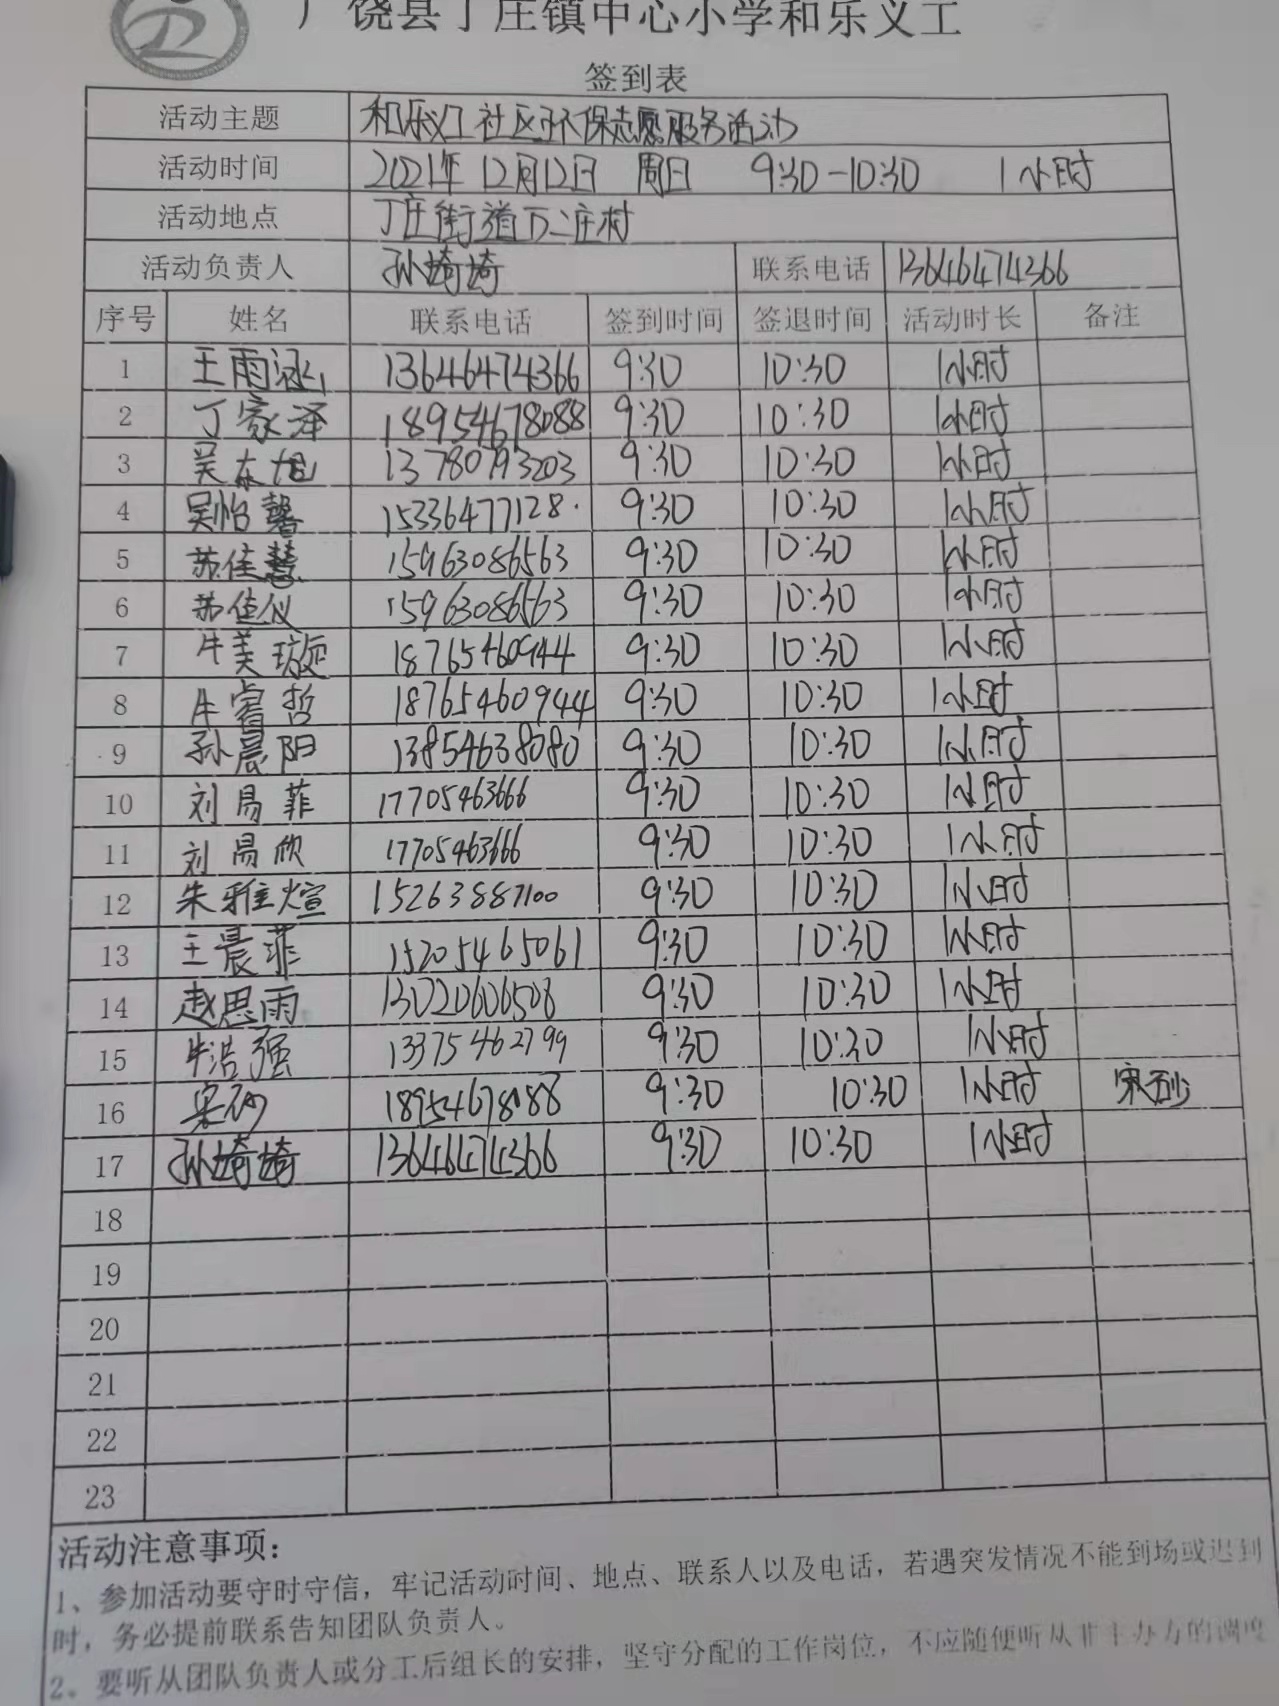 广饶县丁庄镇中心小学和乐义工
签到表
活动主题 和乐义工社区环保志愿服务活动
活动时间 2021年12月12日 周日 9:30-10:30 1小时
活动地点 丁庄街道丁二庄村
活动负责人 孙埼埼 联系电话 13646474366
序号 姓名 联系电话 签到时间 签退时间 活动时长 备注
1 王雨涵 13646474366 9:30 10:30 1小时
2 丁家泽 18954678088 9:30 10:30 1小时
3 吴东旭 13780793203 9:30 10:30 1小时
4 吴怡馨 15336477128 9:30 10:30 1小时
5 苏佳慧 15963086563 9:30 10:30 1小时
6 苏佳仪 15963086563 9:30 10:30 1小时
7 牛美璇 18765460944 9:30 10:30 1小时
8 牛睿哲 18765460944 9:30 10:30 1小时
9 孙晨阳 13854638080 9:30 10:30 1小时
10 刘易菲 17705463666 9:30 10:30 1小时
11 刘易欣 17705463666 9:30 10:30 1小时
12 朱雅煊 15263887100 9:30 10:30 1小时
13 王晨菲 15205465061 9:30 10:30 1小时
14 赵思雨 130220606508 9:30 10:30 1小时
15 牛浩强 13375462799 9:30 10:30 1小时
16 宋砂 18954678088 9:30 10:30 1小时 宋砂
17 孙埼埼 13646474366 9:30 10:30 1小时
18
19
20
21
22
23
活动注意事项：
1、参加活动要守时守信，牢记活动时间、地点、联系人以及电话，若遇突发情况不能到场或迟到
时，务必提前联系告知团队负责人。
2、要听从团队负责人或分工后组长的安排，坚守分配的工作岗位，不应随便听从非主办方的调度